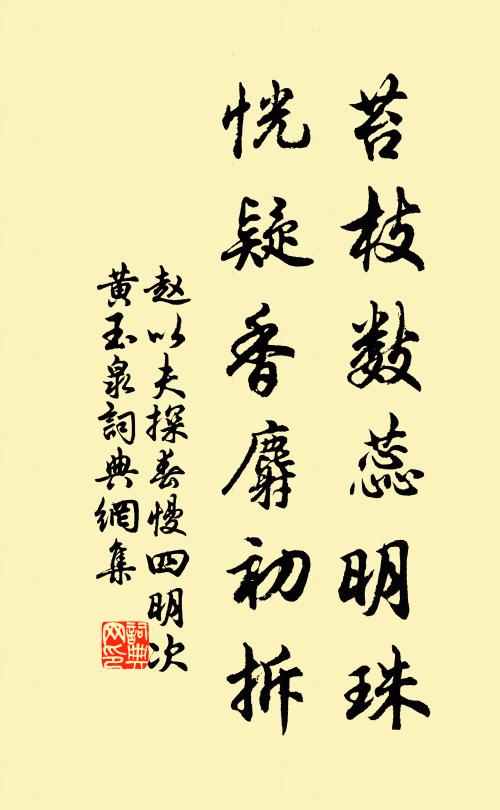 苔枝数蕊明珠
恍疑香麝初拆
赵以夫探春慢四明次
黄玉泉詞典網集
詞典網印